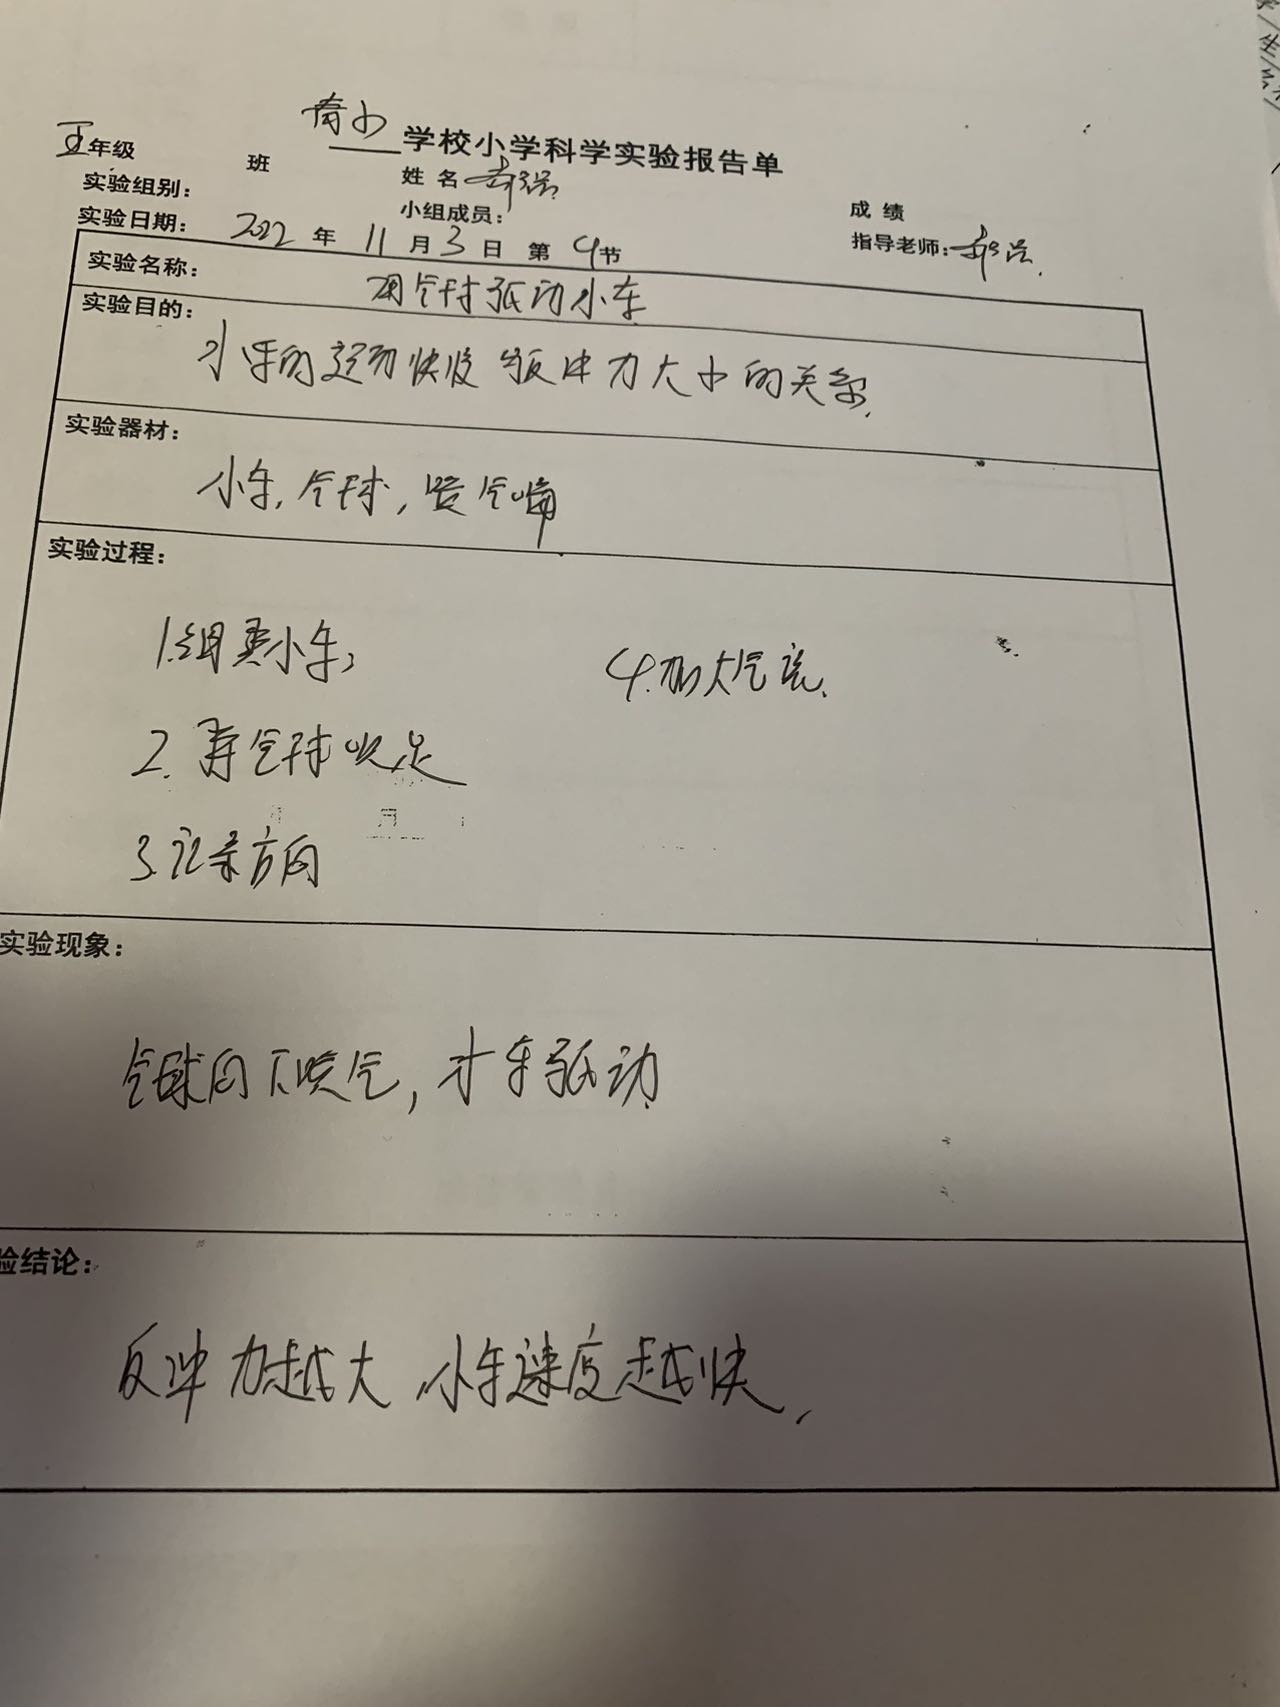 育小学校小学科学实验报告单
五年级 班 姓名 成绩
实验组别： 小组成员： 指导老师：
实验日期： 2022 年 11 月 3 日 第 4 节
实验名称： 用气球驱动小车
实验目的：
小车的运动快慢与反冲力大小的关系.
实验器材：
小车，气球，喷气嘴
实验过程：
1.组装小车， 4.加大气流.
2. 将气球吹足
3.记录方向
实验现象：
气球向下喷气，小车驱动
验结论：
反冲力越大，小车速度越快，